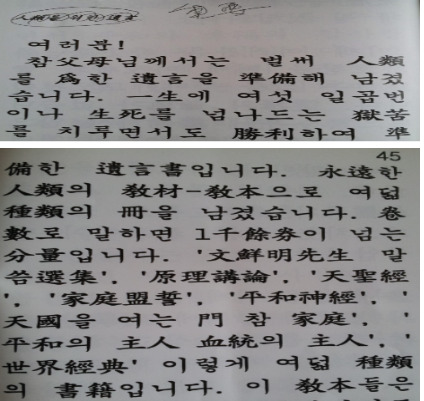 人類를 위한 遺言
여러분!
참父母님께서는 벌써 人類
를 爲한 遺言을 準備해 남겼
습니다. 一生에 여섯 일곱번
이나 生死를 넘나드는 獄苦
를 치루면서도 勝利하여 準
45
備한 遺言書입니다. 永遠한
人類의 敎材-敎本으로 여덟
種類의 冊을 남겼습니다. 卷
數로 말하면 1千餘券이 넘는
分量입니다. '文鮮明先生 말
씀選集', '原理講論', '天聖經
', '家庭盟誓', '平和神經', '
天國을 여는 門 참 家庭', '
平和의 主人 血統의 主人', '
世界經典' 이렇게 여덟 種類
의 書籍입니다. 이 敎本들은